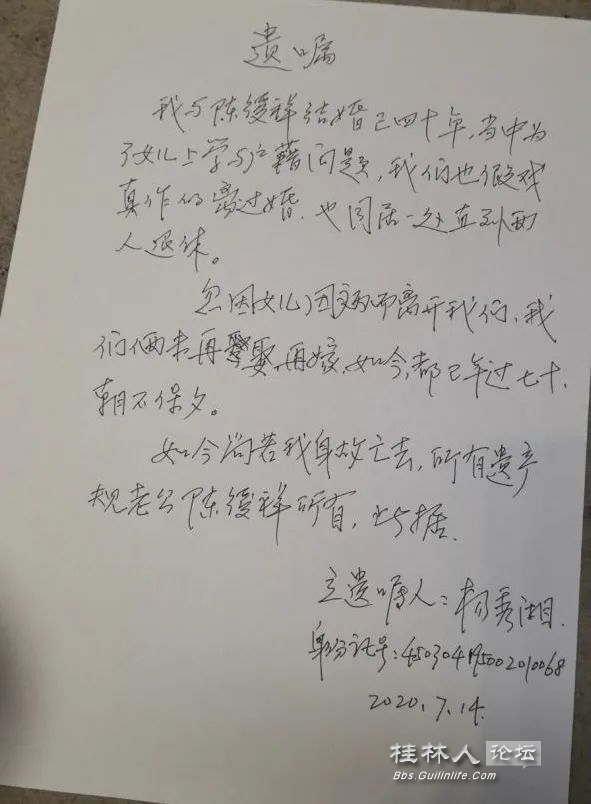 遗嘱
我与陈绶祥结婚已四十年,当中为
了女儿上学与户籍问题,我们也假戏
真作的离过婚,也同居一起直到两
人退休。
忽因女儿因病而离开我们,我
们俩未再娶再嫁,如今,都已年过七十,
朝不保夕。
如今尚若我身故亡去,所有遗产
规老公陈绶祥所有,此据.
立遗嘱人:杨秀湘.
身份证号:
2020.7.14.
桂林人论坛
Bbs.Guilinlife.Com